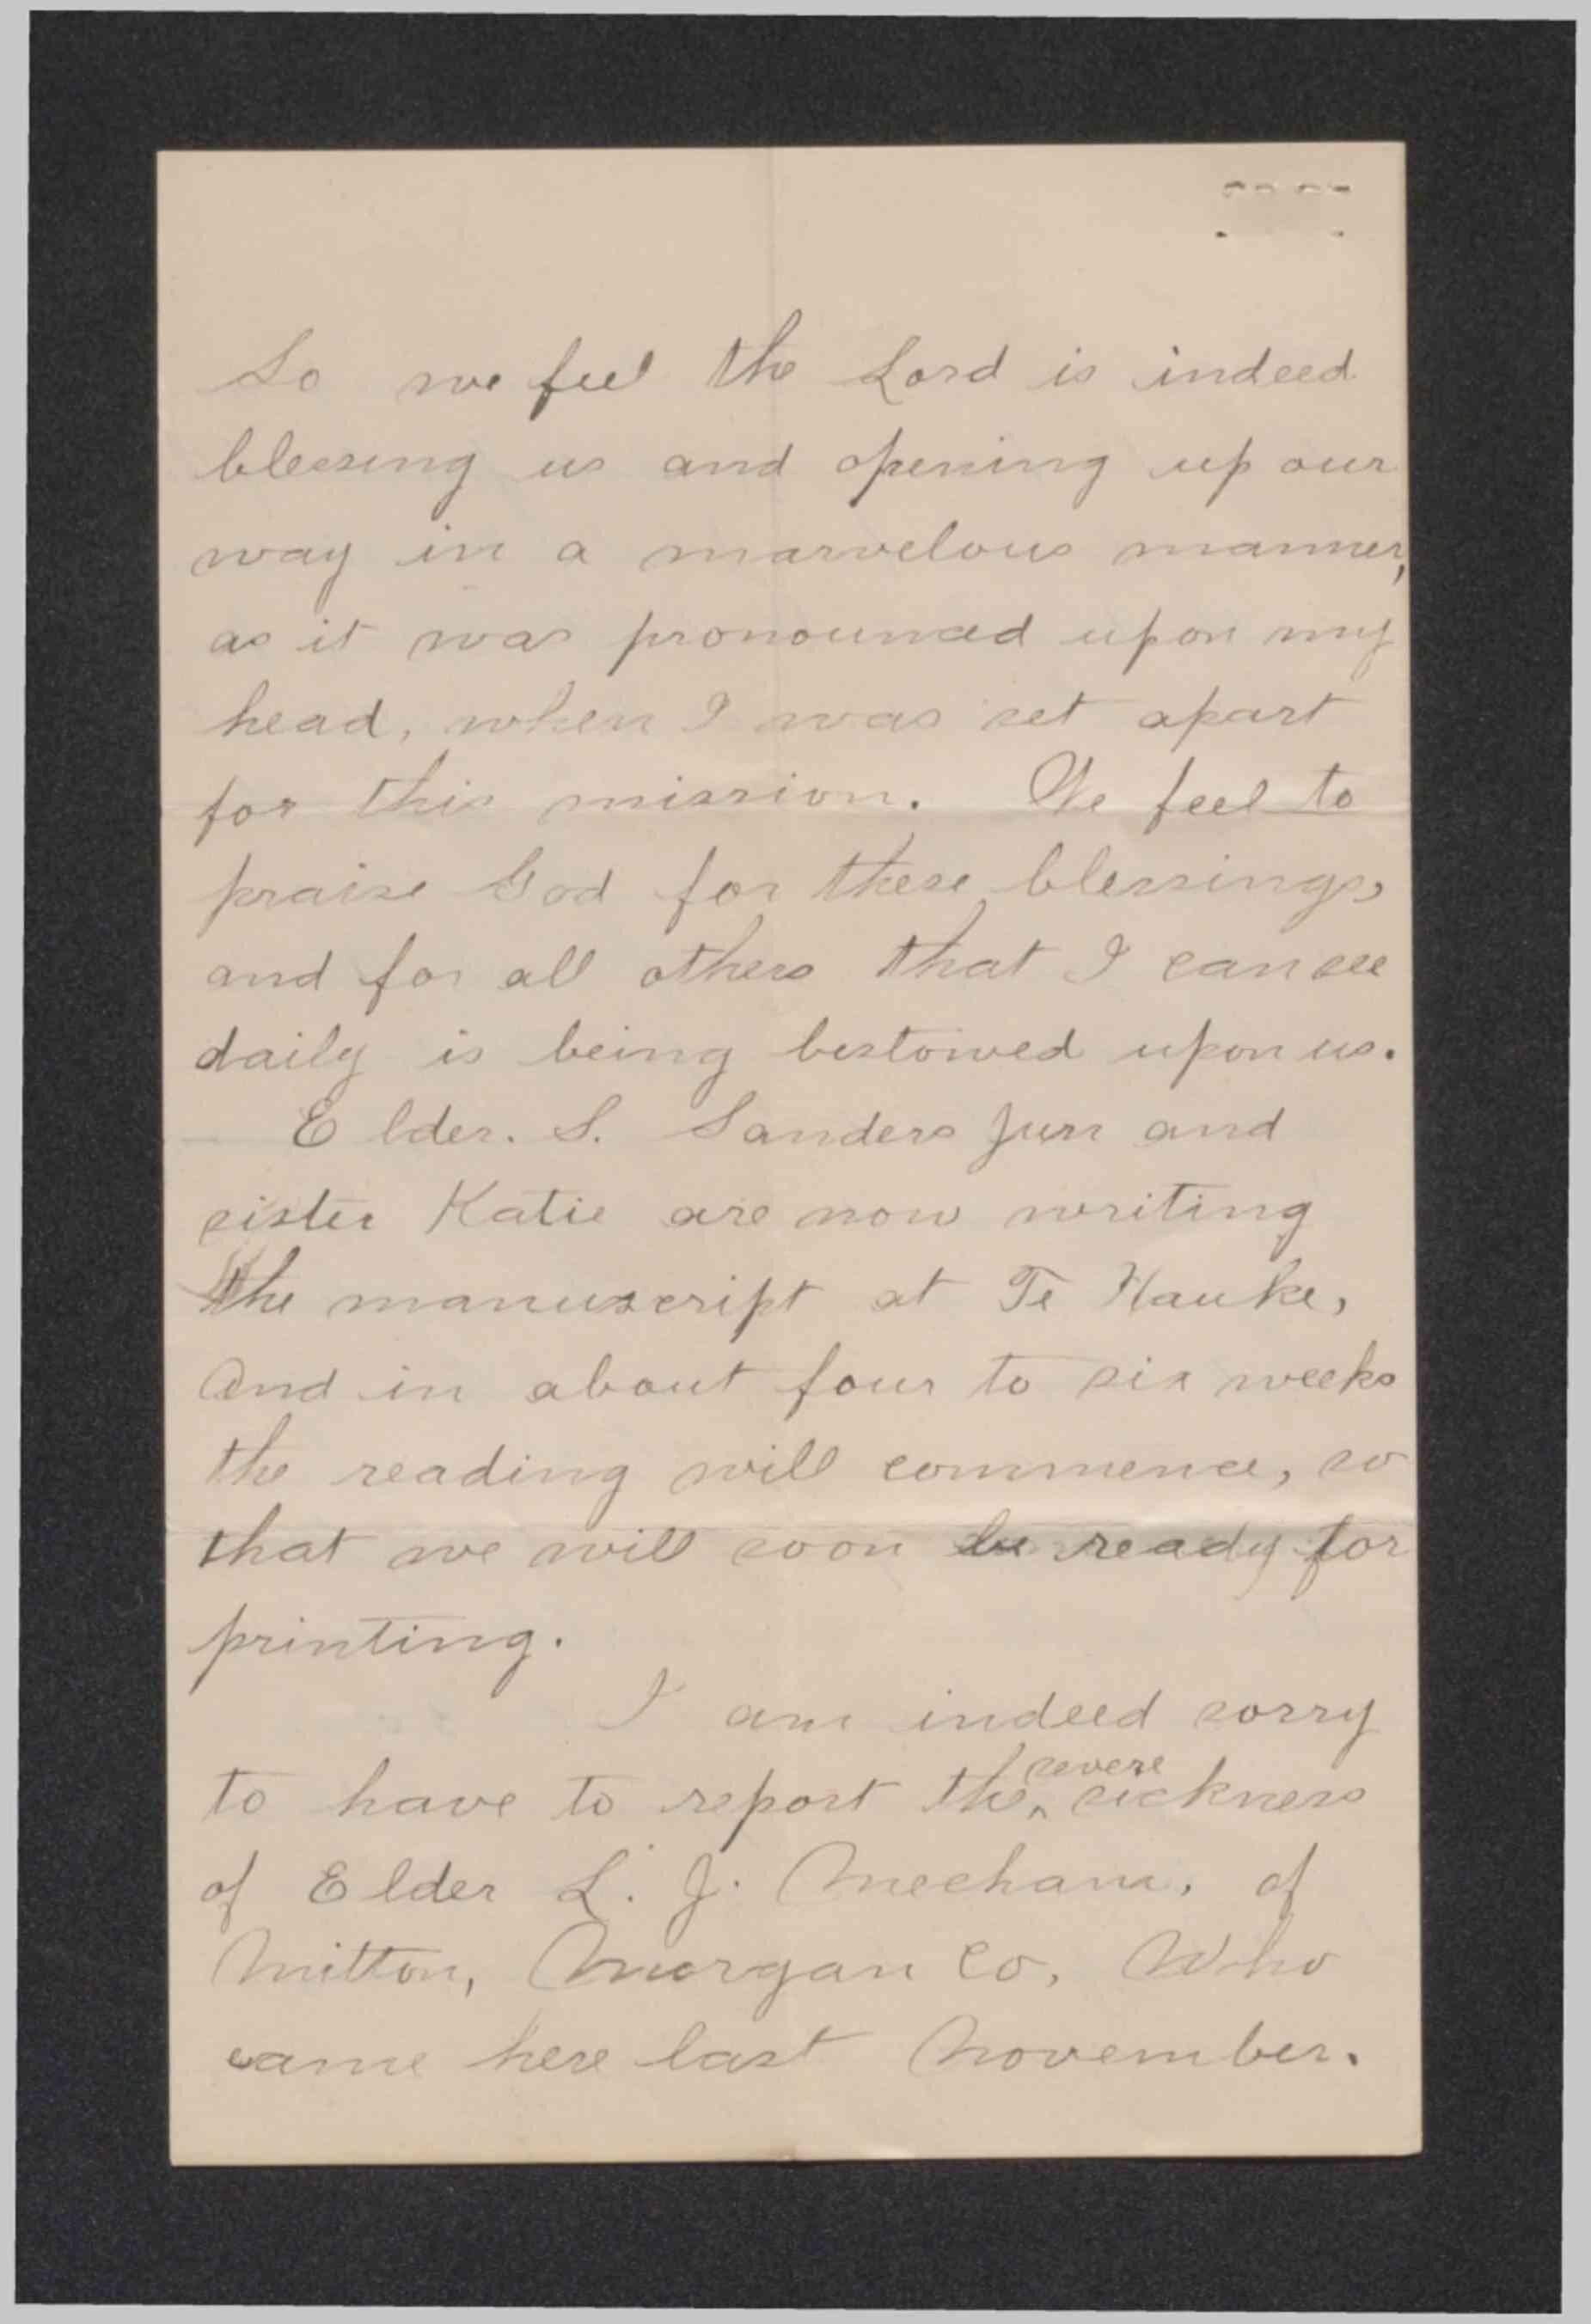 So we feel the Lord is indeed
blessing us and opening up our
way in a marvelous manner,
as it was pronounced upon my
head, when I was set apart
for this mission. We feel to
praise God for these blessings,
and for all others that I can see
daily is being bestowed upon us.
Elder. S. Sanders Jun and
sister Katie are now writing
the manuscript at Te Hauke,
And in about four to six weeks
the reading will commence, so
that we will soon be ready for
printing.
I am indeed sorry
to have to report the ^severe sickness
of Elder L. J. Mecham, of
Milton, Morgan Co, Who
came here last November.